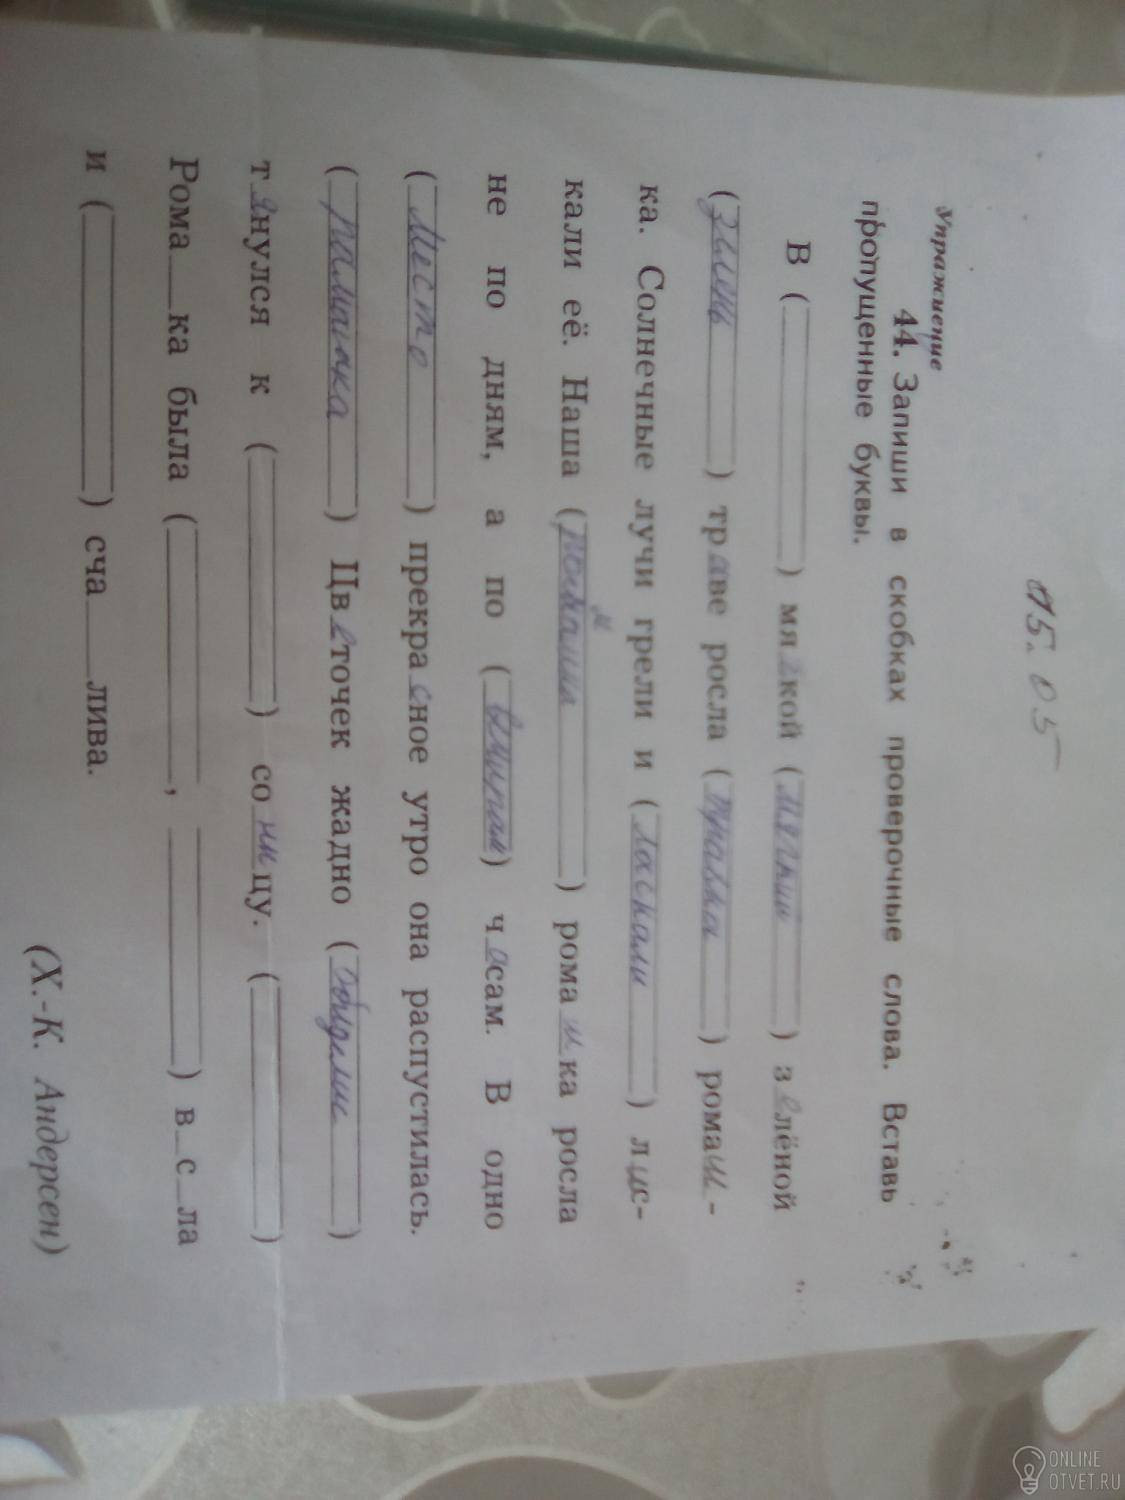 15.05
Упражнение
44. Запиши в скобках проверочные слова. Вставь
пропущенные буквы.
В (____) мягкой (мягкий) зелёной
(зелень) траве росла (травка) ромаш-
ка. Солнечные лучи грели и (ласкали) лис-
кали её. Наша () ромашка росла
не по дням, а по () часам. В одно
(место) прекрасное утро она распустилась.
(ромашка) Цветочек жадно ()
тянулся к (____) со цу. (____)
Рома__ка была (____, ____) в_с_ла
и (____) сча__лива.
(Х.-К. Андерсен)
ONLINE
OTVET.RU